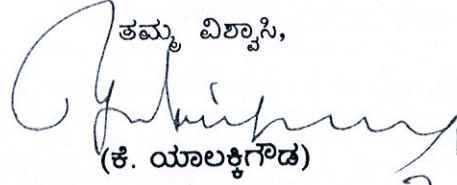 ತಮ್ಮ ವಿಶ್ವಾಸಿ,
(ಕೆ. ಯಾಲಕ್ಕಿಗೌಡ)